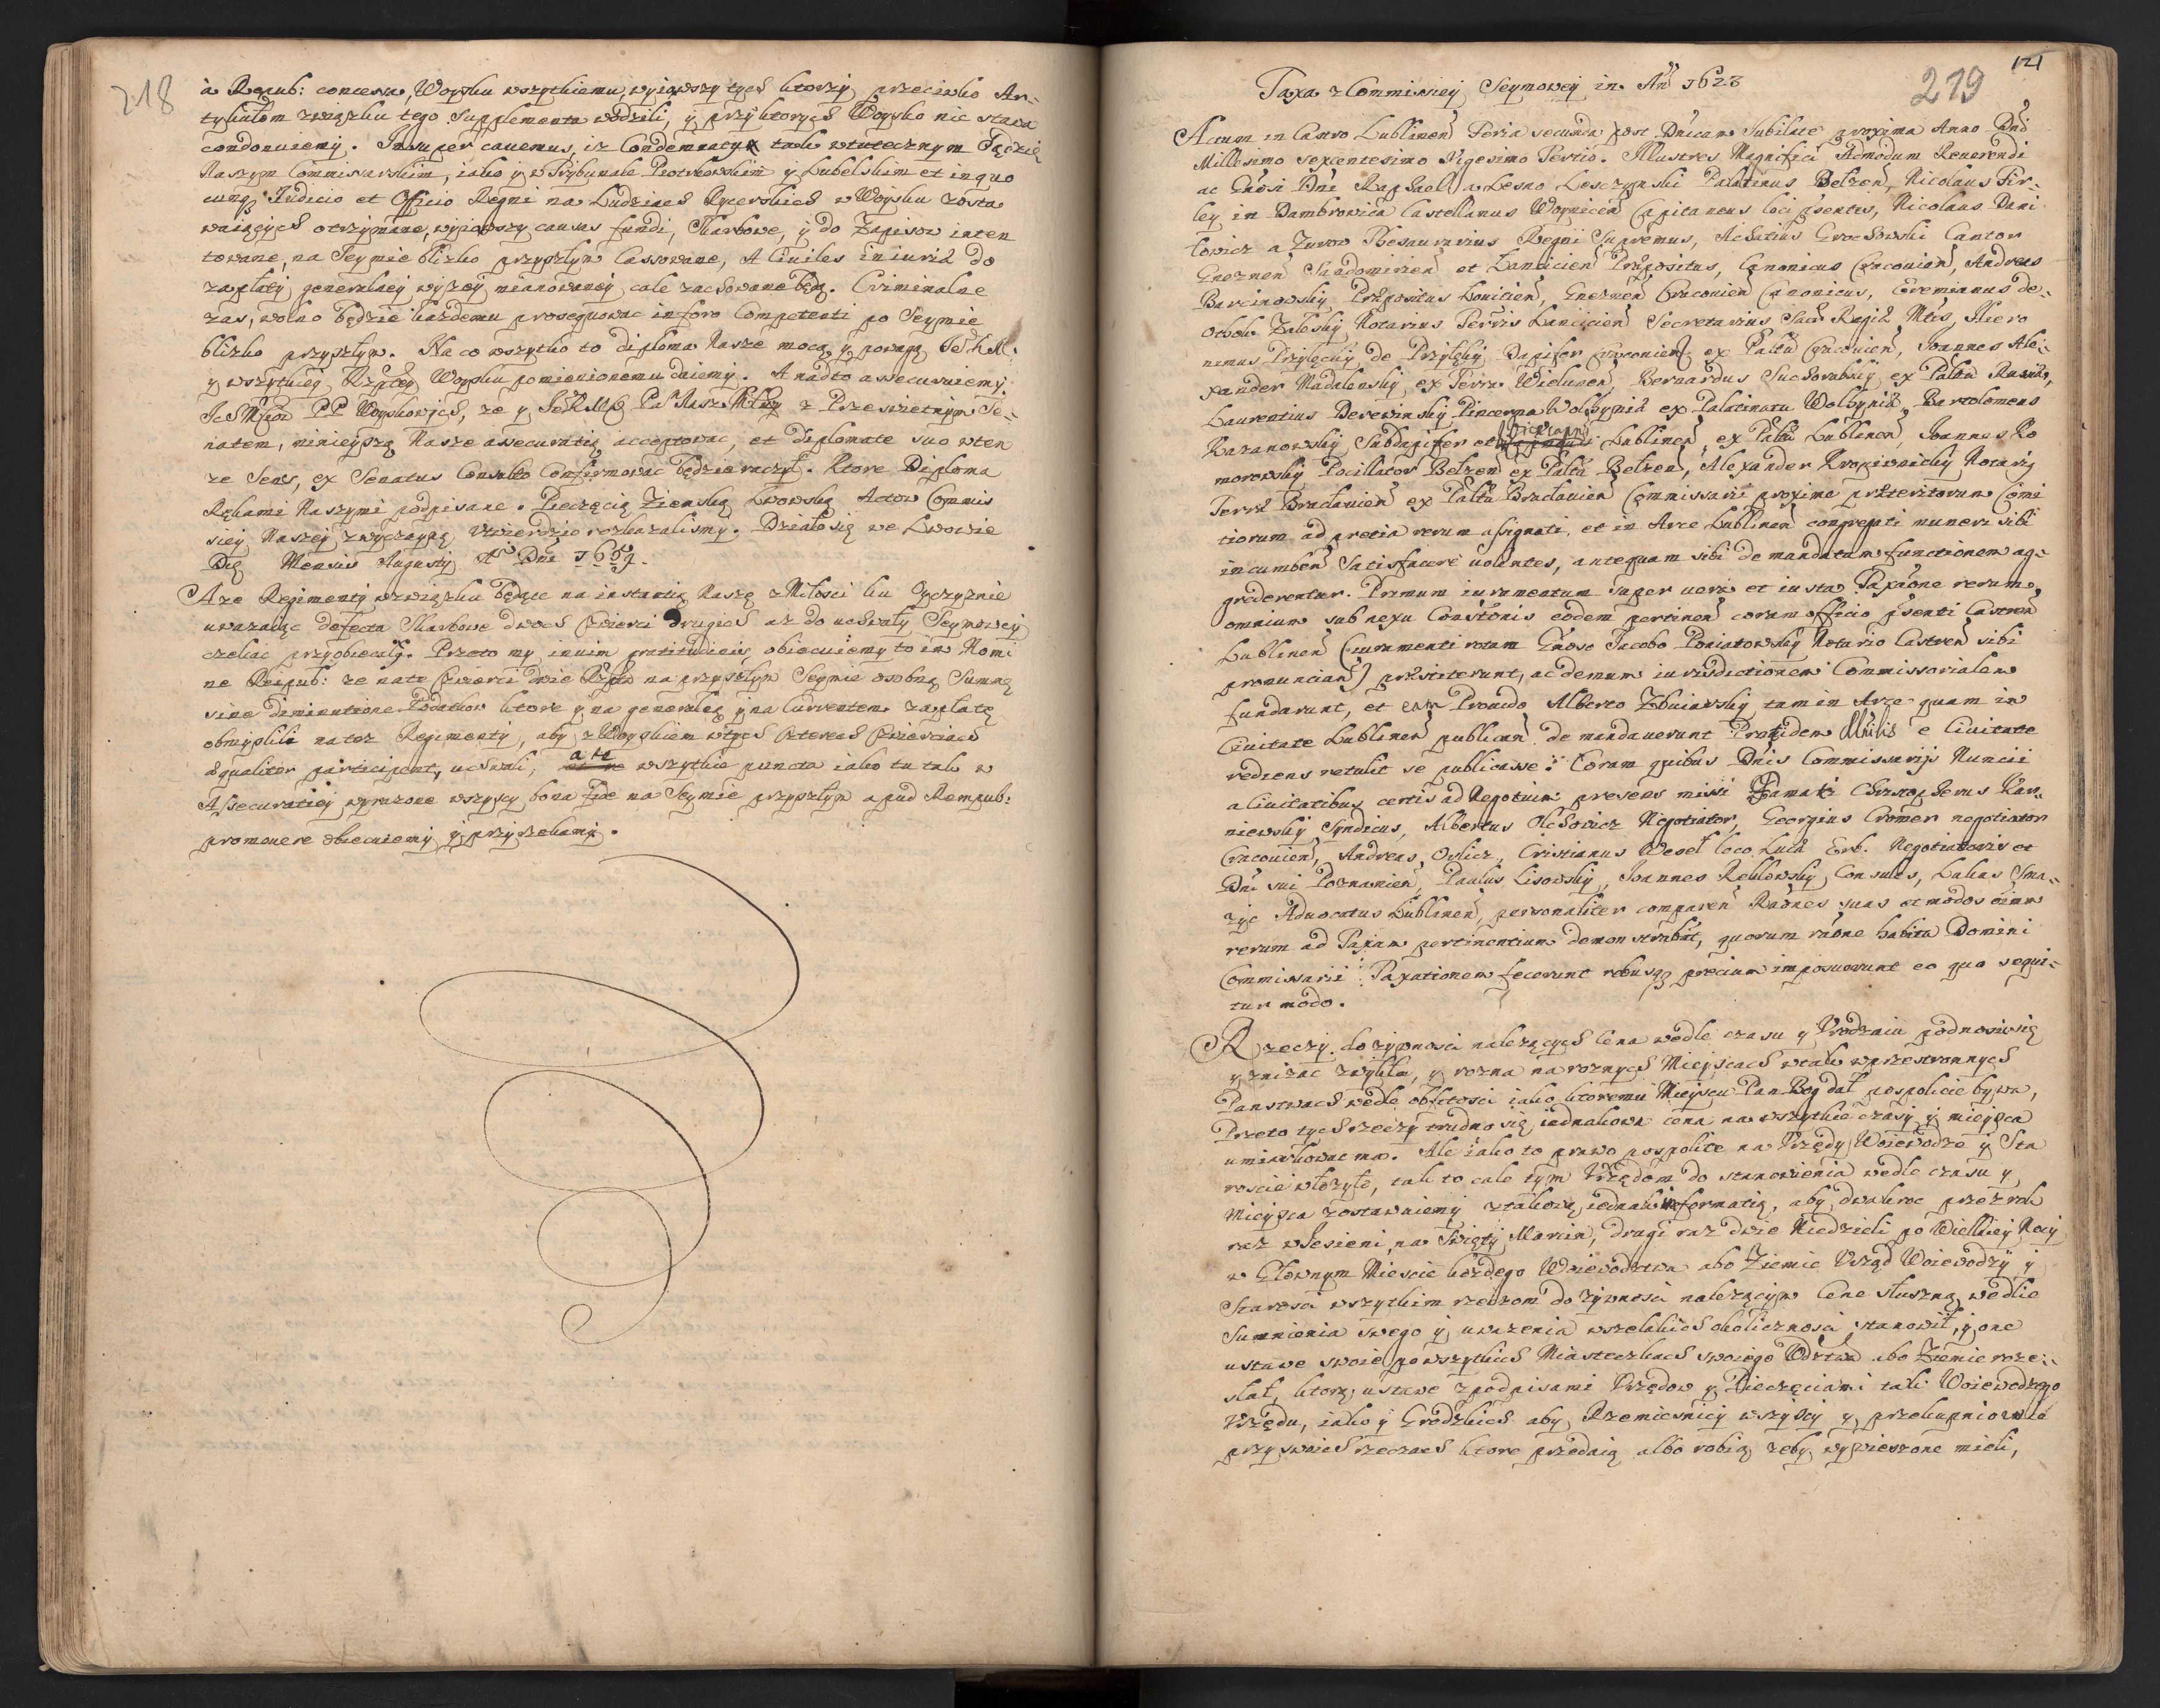 218
à Repub: concessa, Woysku wszytkiemu, wyiąwszy tych ktorzy przeciwko Ar-
tykułom związku tego Supplementa wodzili, y przy ktorych Woysko nie stawa
condonuiemy. Insuper cavemus, iz Condemnaty tak w tutecznym Sądzie
Naszym Commissarskim, iako y w Trybunale Piotrkowskim y Lubelskim et in quo
cunq; Iudicio et Officio Regni na Ludziach Rycerskich w Woysku zosta
waiących otrzymane, wyiąwszy causas fundi, Skarbowe, y do Zapisow inten
towane, na Seymie blizko przyszłym Cassowane, A Civiles iniuriæ do
zapłaty generalney wyzey mianowaney cale zachowane będą. Criminalne
zas, wolno będzie kazdemu prosequowac in foro Competenti po Seymie
blizko przyszłym. Na co wszytko to diploma Nasze mocą y powagą JeoKM:
y wszytkiey Rzptey Woysku pomienionemu daiemy. A nadto assecuruiemy
PP Woyskowych, ze y z Przeswietnym Se-
natem, ninieyszą Nasze assecuratią acceptowac, et diplomate suo w ten
ze Sens, ex Senatus Consulto Confirmowac będzie raczył. Ktore Diploma
Rękami Naszymi podpisane. Pieczęcią Ziemską Lwowską Actow Commis
siey Naszey zwyczayną Utwierdzic roskazalismy. Działo się we Lwowie
Die Mensis Augusty Ao Dni
A ze Regimenty w związku będące na instantią Naszę z Miłosci ku Oyczyznie
uwazaiąc defecta Skarbowe dwoch Cwierci drugich az do uchwały Seymowey
czekac przyobiecały. Przeto my in vim gratitudinis, obiecuiemy to im Nomi
ne Reipub: ze na te Cwierci dwie Rzptа na przyszłym Seymie osobną Summę
sine diminutione Podatkow ktore y na generalną y na Currentem zapłatę
obmyslili na toz Regimenty, aby z Woyskiem w tych czterech Cwierciach
æqualiter participent, uchwali, a te wszytkie puncta iako tu tak w
Assecuratiey wyrazone wszyscy bona fide na Seymie przyszłym apud Rempub:
promovere obiecuiemy y przyrzekamy.
121
219
Taxa z Commissiey Seymowey in Ao 1623
Actum in Castro Lublinen Feria secunda post Dnicam Jubilate proxima Anno Dni
Millesimo Sexcentesimo Vigesimo Tertio. Illustres Magnifici Admodum Reverendi
ac Gnosi Dni Raphael a Lesno Lesczynski Palatinus Belzen, Nicolaus Fir-
ley in Dambrowica Castellanus Woynicen Capitaneus loci psentis, Nicolaus Dani
łowicz a Zurow Thesaurarius Regni Supremus, Achatius Grochowski Cantor
Gneznen Sandomirien et Lancicien Præpositus, Canonicus Cracovien, Andreas
Barcinowsky Præpositus Lovicien, Gneznen Cracovien Canonicus, Eremianus de
Othok Zalesky Notarius Terræs Lancicien Secretarius Sacæ Regiæ Mtis, Hiero
nimus Przyłęcky de Przyłęky Dapifer Cracovien ex Paltu Cracovien, Joannes Ale-
xander Madalensky ex Terra Wielunen, Bernardus Suchorabsky ex Paltu
Laurentius Derewinsky Pincerna Wolhyniæ ex Palatinatu Wolhyniæ, Bartolomeus
Kazanowsky Subdapifer et Lublinen, ex Paltu Lublinen, Joannes Ko
morowsky Pocillator Belzen ex Paltu Belzen, Alexander Kropiwnicky Notarius
Terræ Bracłavien ex Paltu Bracłavien Commissarii proxime præteritorum Comi
tiorum ad pretia rerum assignati, et in Arce Lublinen congregati muneri sibi
incumben Satisfacere volentes, antequam sibi demandatam functionem ag-
grederentur. Primum iuramentum super vera et iusta Taxaone rerum
omnium sub nexu Constonis eodem pertinen coram officio psenti Castren
Lublinen (iuramenti rotam Gnoso Jacobo Poniatowsky Notario Castren sibi
pronuncian) præstiterunt, ac demum iurisdictionem Commissorialem
fundarunt, et eam Provido Alberto Zbuiawsky tam in Arce quam in
Civitate Lublinen publican demandaverunt è Civitate
rediens retulit se publicasse. Coram quibus Dnis Commissarijs Nuncii
a Civitatibus certis ad Negotium presens missi Famati Christopherus Kar-
niewsky Syndicus, Albertus Olchowicz Negotiator, Georgius Cromer negotiator
Cracovien, Andreas Orlicz, Cristianus Wesel loco Lucæ Erb. Negotiatoris et
Dni sui Poznanien, Paulus Lisowsky, Joannes Reklowsky Consules, Lukas Sma-
zyc Advocatus Lublinen, personaliter comparen Raones suas et modos oium
rerum ad Taxam pertinentium demonstrabat, quorum raone habita Domini
Commissarii Taxationem fecerunt rebusq; precium imposuerunt eo quo sequi-
tur modo.
Rzeczy do zywnosci nalezących Cena wedle czasu y Urodzaiu podnosic się
y znizac zwykła, y rozna na roznych Mieyscach w tak w przestronnych
Panstwach wedle obfitosci iako ktoremu Mieyscu Pan Bog dał pospolicie bywa,
Przeto tych rzeczy trudno się iednakowa cena na wszytkie czasy y mieysca
umiarkowac ma. Ale iako to prawo pospolite na Urzędy Woiewodze y Sta
roscie włozyło, tak to cale tym Urzędom do stanowienia wedle czasu y
Mieysca zostawuiemy z takową iednak informatią, aby dwakroc przez rok
raz w Iesieni, na Swięty Marcin, drugi raz dwie Niedzieli po Wielkiey Nocy
w Głownym Miescie kazdego Woiewodztwa abo Ziemie Urząd Woiewodzy y
Starosci wszytkim rzeczom do zywnosci nalezącym Cene słuszną wedle
Sumnienia swego y uwazenia wszelakich okolicznosci stanowił, y one
ustawe swoie po wszytkich Miasteczkach swoiego Wdztwa abo Ziemie roze-
słał, ktorą ustawe z podpisami Urzędow y Pieczęciami tak Woiewodzego
Urzędu, iako y Grodzkich aby Rzemiesnicy wszyscy y przekupniowie
przy swoich rzeczach ktore przedaią albo robią zeby wywieszone mieli,